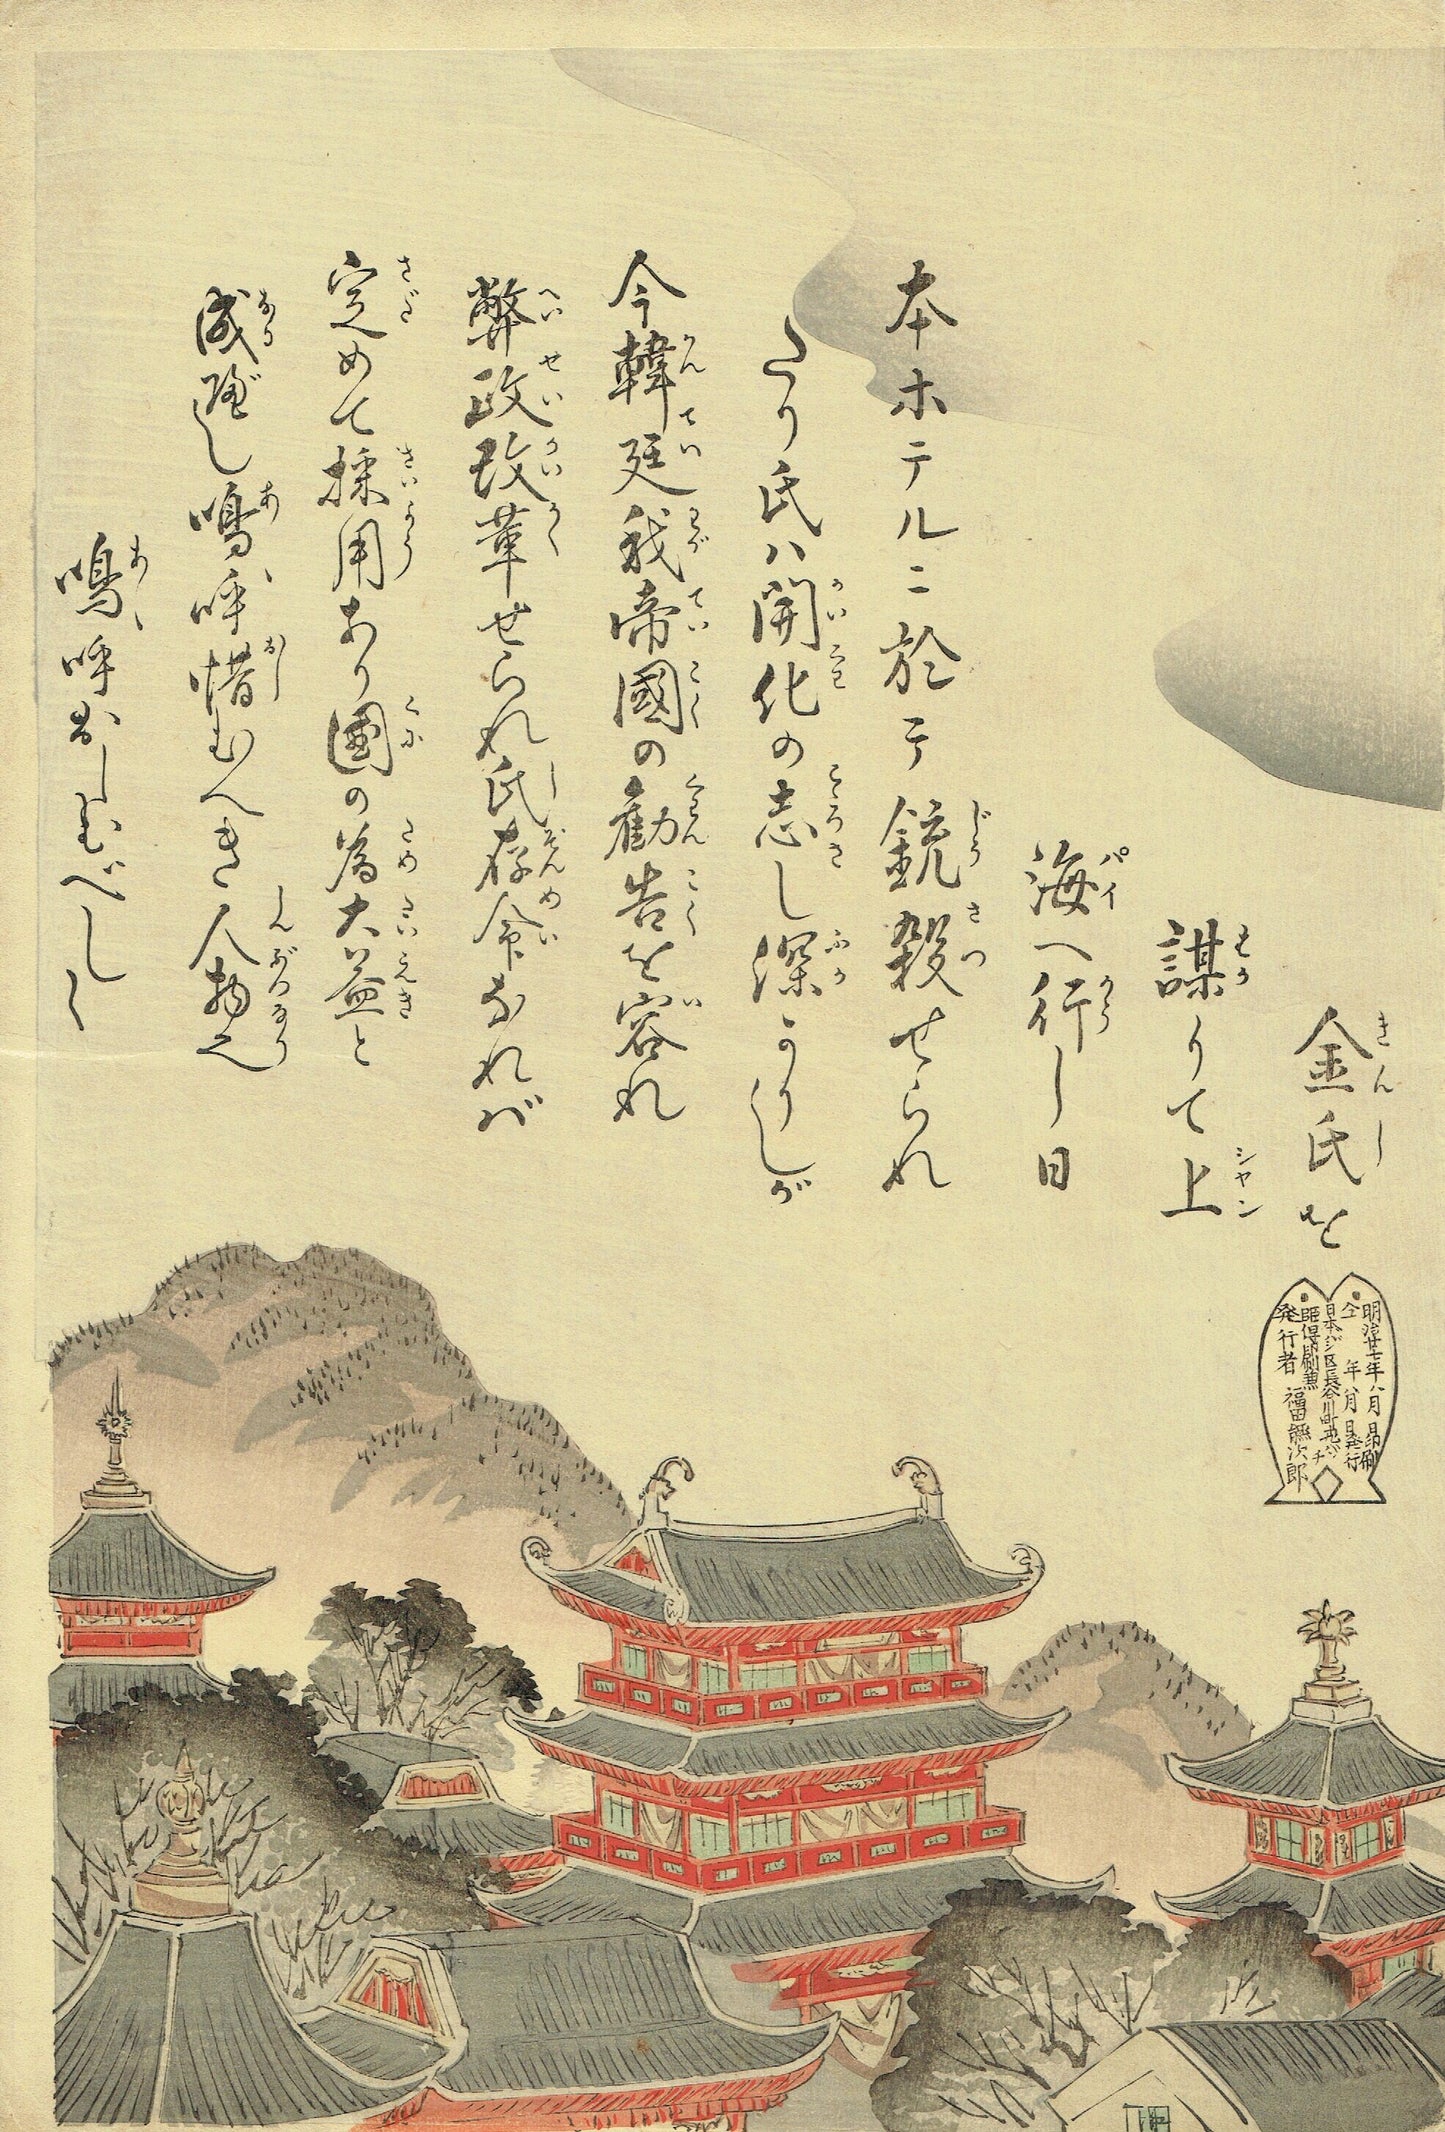 金氏を
謀りて上
海へ行し日
本ホテルニ於テ銃殺せられ
たり氏ハ開化の志し深かりしが
今韓廷我帝國の勸告を容れ
弊政改革せられ氏存命なれバ
定めて採用あり國の為大益と
成べし嗚呼惜むべき人物也
嗚呼おしむべし〳〵
明治廿七年八月 日印刷
仝 年八月 日発行
日本バシ区長谷川町十九バンチ
発行者 福田熊次郎